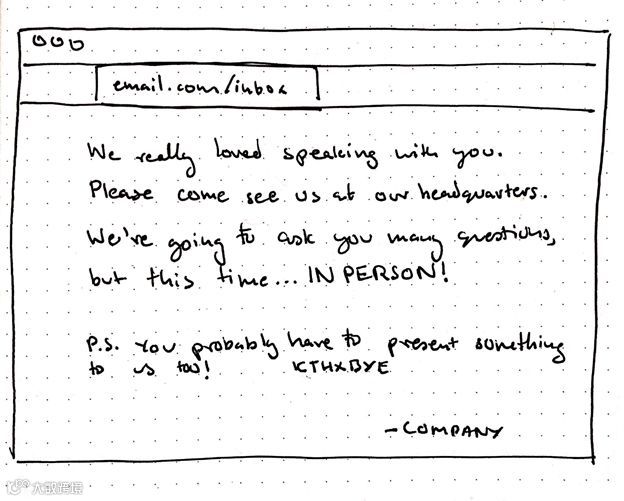 email.com/inbox
We really loved speaking with you.
Please come see us at our headquarters.
We're going to ask you many questions,
but this time... IN PERSON!
P.S. You probably have to present something
to us too! KTHXBYE
-COMPANY
大数跨境